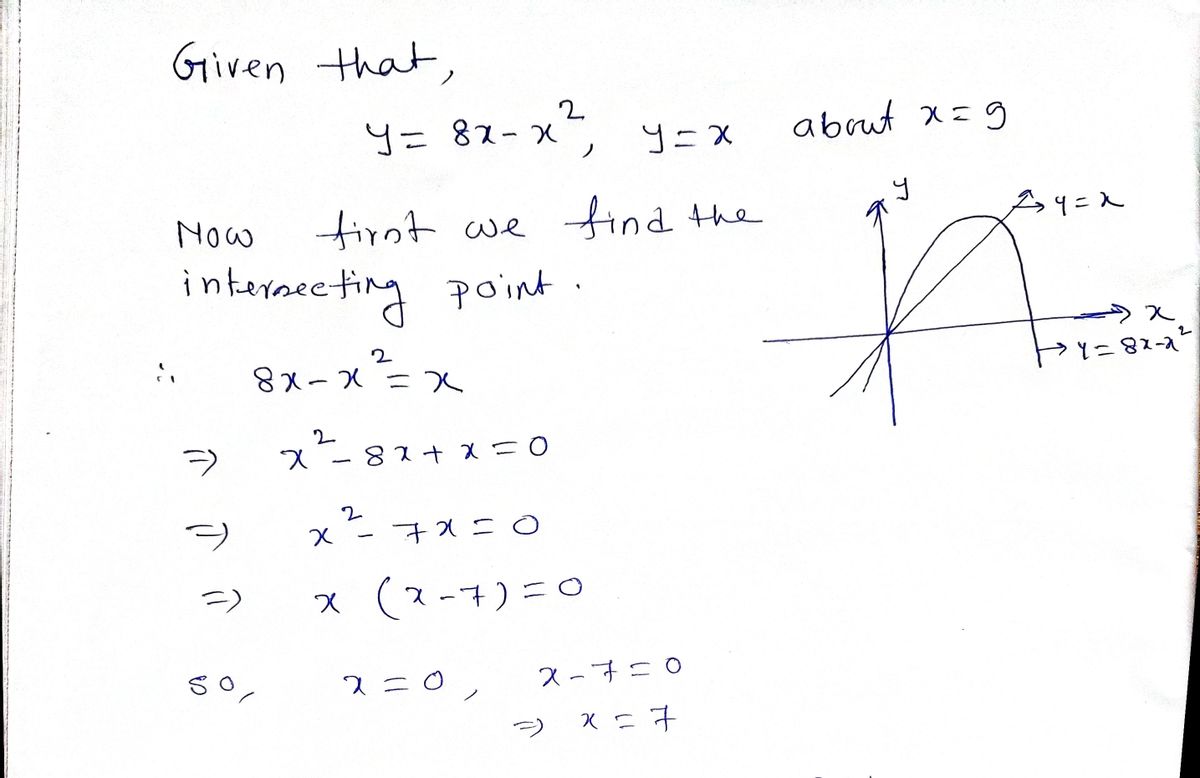 Given that,
y = 8x - x², y = x about x = 9
y
y = x
Now first we find the
intersecting point.
x
y = 8x-x²
∴ 8x - x² = x
⇒ x² - 8x + x = 0
⇒ x² - 7x = 0
⇒ x (x - 7) = 0
so, x = 0, x - 7 = 0
⇒ x = 7